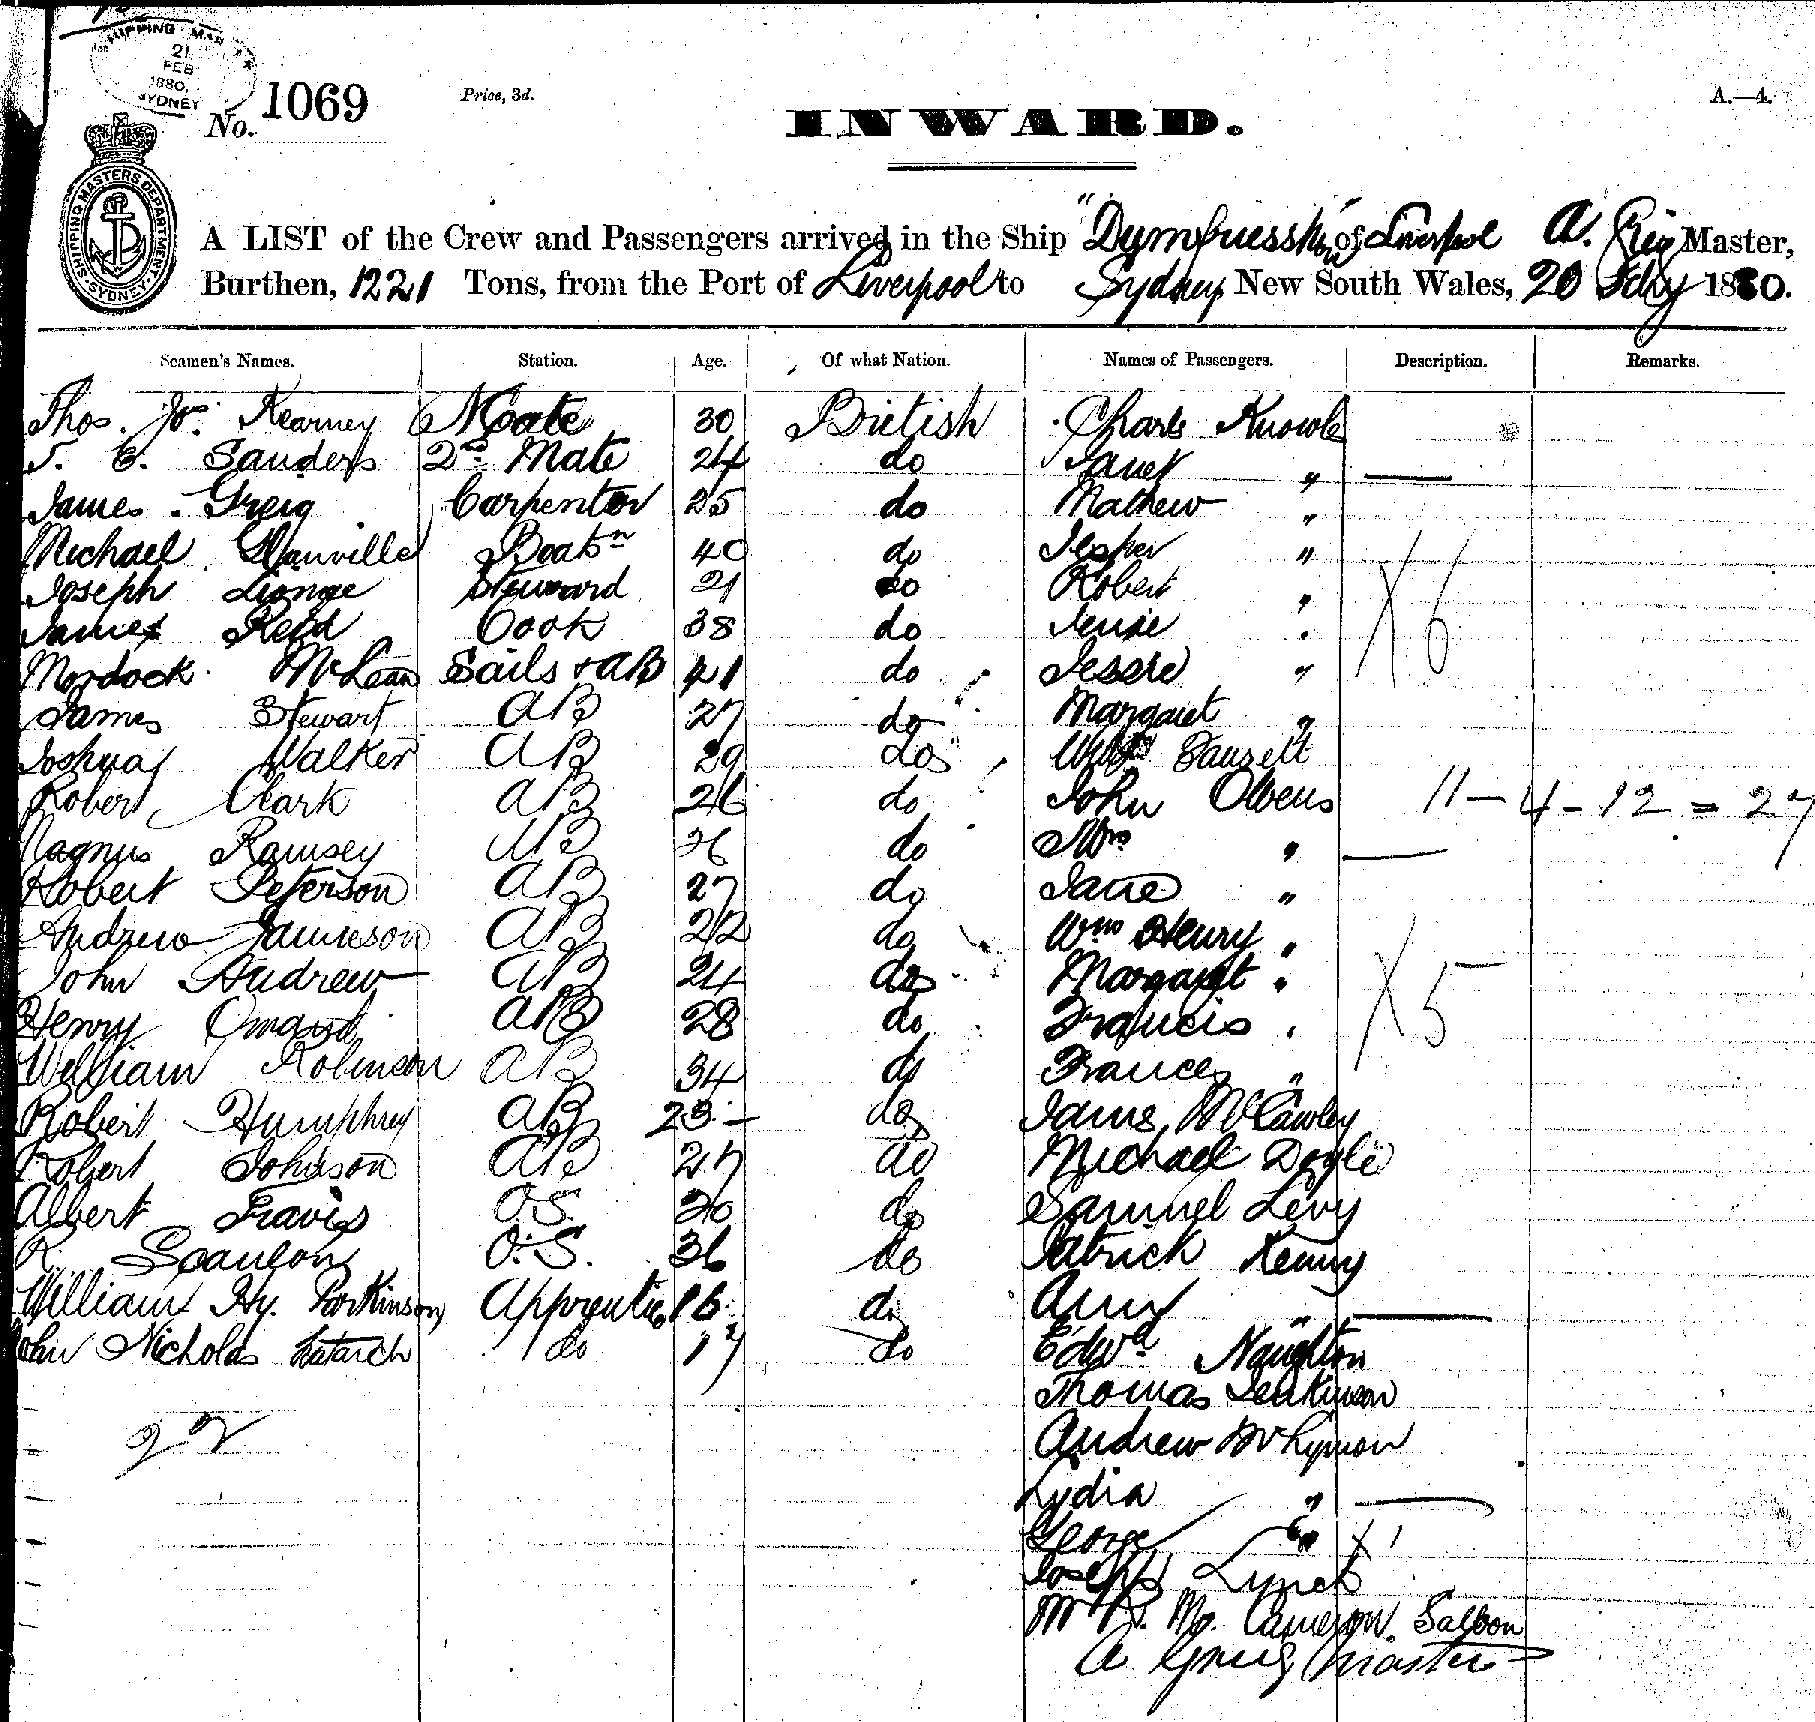 SHIPPING MASTER
21
FEB
1880.
SYDNEY
No. 1069
Price, 3d.
A.—4.
INWARD.
SHIPPING MASTERS DEPARTMENT. SYDNEY.
A LIST of the Crew and Passengers arrived in the Ship "Dumfriesshire" of Liverpool A. Greig Master,
Burthen, 1221 Tons, from the Port of Liverpool to Sydney New South Wales, 20 Feby 1880.
Seamen's Names. Station. Age. Of what Nation. Names of Passengers. Description. Remarks.
Thos. Jos. Kearney Mate 30 British Charls Knowls
T. E. Sanders 2nd Mate 24 do Janet " —
James Greig Carpenter 25 do Mathew "
Michael Glanville Boatsn 40 do "
Joseph Steward 21 do Robert "
James Reid Cook 38 do "
Mordock McLean Sails & AB 41 do Jessie "
James Stewart AB 27 do Margaret "
Joshua Walker AB 29 do Wm
Robert Clark AB 26 do John Owens 11 – 4 – 12 = 27
Magnus Ramsey AB 26 do Mrs " —
Robert Peterson AB 27 do Jane "
Andrew Jamieson AB 22 do Wm Henry "
John Andrew AB 24 do Margaret " X 5
Henry Omand AB 28 do Francis "
William Robinson AB 34 do Frances "
Robert Humphrey AB 23 do James McCawley
Robert Johnson AB 27 do Michael Doyle
Albert Travis O.S. 20 do Samuel Levy
R. Scanlon O.S. 36 do Patrick Kenny
William Hy. Parkinson Apprentice 16 do Amy " —
John Nicholas do 17 do Edwd Naughton
Thomas Jenkinson
22 Andrew
Lydia " —
George " X 1
Joseph Lynch
Mr Cameron. Saloon
A Greig Master
X 6